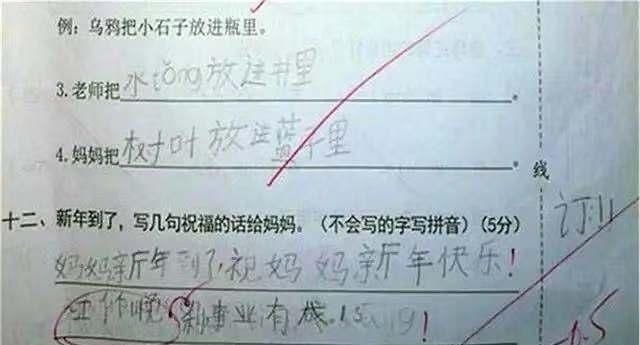 例：乌鸦把小石子放进瓶里。
3.老师把水tǒng放进书里。
4.妈妈把树叶放进蓝子里。
线
十二、新年到了，写几句祝福的话给妈妈。（不会写的字写拼音）（5分）
妈妈新年到了,祝妈妈新年快乐！
事业有成！